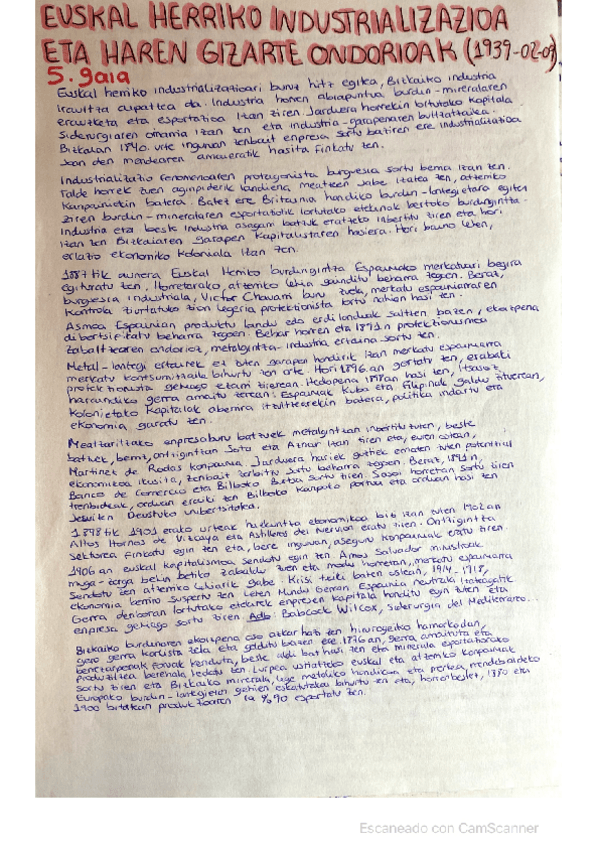 EUSKAL HERRIKO INDUSTRIALIZAZIOA
ETA HAREN GIZARTE ONDORIOAK (1939-02-09)
5. gaia
Euskal herriko industrializazioari buruz hitz egitea, Bizkaiko industria
iraultza aipatzea da. Industria horren abiapuntua burdin-mineralaren
erauzketa eta esportazioa izan ziren. Jarduera horrekin lortutako kapitala
Siderurgiaren oinarria izan zen eta industria-garapenaren bultzatzailea.
Bizkaian 1840. urte inguruan zenbait enpresa sortu baziren ere industrializazioa
Joan den mendearen amaieratik hasita finkatu zen.
Industrializazio fenomenoaren protagonista burgesia sortu berria izan zen.
Talde horrek zuen agintepiderik handiena, meatzeen jabe izatea zen, atzerriko
Konpainiekin batera. Batez ere Britainia handiko burdin-lantegietara egiten
ziren burdin-mineralaren esportaziotik lortutako etekinak bertako burdingintza-
industria eta beste industria osagarri batzuk eratzeko inbertitu ziren eta hori
izan zen Bizkaiaren Garapen Kapitalistaren hasiera. Hori baino lehen,
erlazio ekonomiko koloniala izan zen.
1887tik aurrera, Euskal Herriko burdingintza Espainiako merkatuari begira
egituratu zen. Horretarako, atzerriko lehia gainditu beharra zegoen. Beraz,
burgesia industriala, Victor Chavarri buru zuela, merkatu espainiarraren
Kontrola ziurtatuko zion legeria protekzionista lortu nahian hasi zen.
Asmoa Espainian produktu landu edo erdi landuak saltzen bazen, ekoizpena
dibertsifikatu beharra zegoen. Behar horren eta 1891n protekzionismoa
zabaltzearen ondorioz, metalgintza-industria ertaina sortu zen.
Metal-lantegi ertainek ez zuten garapen handirik izan merkatu espainiarra
merkatu kontsumitzaile bihurtu zen arte. Hori 1896.an gertatu zen, erabaki
protekzionista gehiago etorri zirenean. Hedapena 1898an hasi zen, itsasoz
haraindiko gerra amaitu zenean: Espainiak Kuba eta Filipinak galdu zituenean,
Kolonietako Kapitalak aberrira itzultzearekin batera, politika indartu eta
ekonomia garatu zen.
Meatzaritzako enpresaburu batzuek metalgintzan inbertitu zuten, beste
batzuek, berriz, ontzigintzan. Sota eta Aznar izan ziren eta, euren ostean,
Martinez de Rodas konpainia. Jarduera hasiek guztiek ematen zuten potentzial
ekonomikoa ikusita, zenbait zerbitzu sortu beharra zegoen. Beraz, 1891n,
Banco de Comercio eta Bilboko Burtsa sortu ziren. Sasoi horretan sortu ziren
trenbideak, orduan eraiki zen Bilboko Kanpoko portua eta orduan hasi zen
Jesuiten Deustuko unibertsitatea.
1898tik 1901 erako urteak hazkuntza ekonomikoa bizi izan zuten 1902an
Altos Hornos de Vizcaya eta Astilleros del Nervion eratu ziren. Ontzigintza
sektorea finkatu egin zen eta, bere inguruan, aseguru konpainiak eratu ziren.
1906an euskal kapitalismoa sendotu egin zen. Amos Salvador ministroak
muga-zerga berria betiko zabaldu zuen eta modu horretan, merkatu espainiarra
Sendotu zen atzerriko lehiarik gabe. Krisi txiki baten ostean, 1914-1918,
ekonomia berriro suspertu zen Lehen Mundu Gerran. Espainia neutrala izateagatik
Gerra denboran lortutako etekinek enpresen kapitala handitu egin zuten eta
enpresa gehiago sortu ziren Adb: Babcock Wilcox, Siderurgia del Mediterraneo...
Bizkaiko burdinaren ekoizpena oso azkar hazi zen hirurogeiko hamarkadan,
gero gerra karlista zela eta gelditu bazen ere. 1876an, gerra amaituta eta,
beneturpenak foruak kenduta, beste aldi bat hasi zen eta minerala esportatzeko
produkzioa berehala hedatu zen. Lurpea ustiatzeko euskal eta atzerriko konpainiak
sortu ziren eta Bizkaiko minerala, lege metaliko handikoa eta merkea, mendebaldeko
Europako burdin-lantegietan gehien eskatutakoa bihurtu zen eta, horren bidez, 1880 eta
1900 bitartean produkzioaren ia %90 esportatu zen.
Escaneado con CamScanner